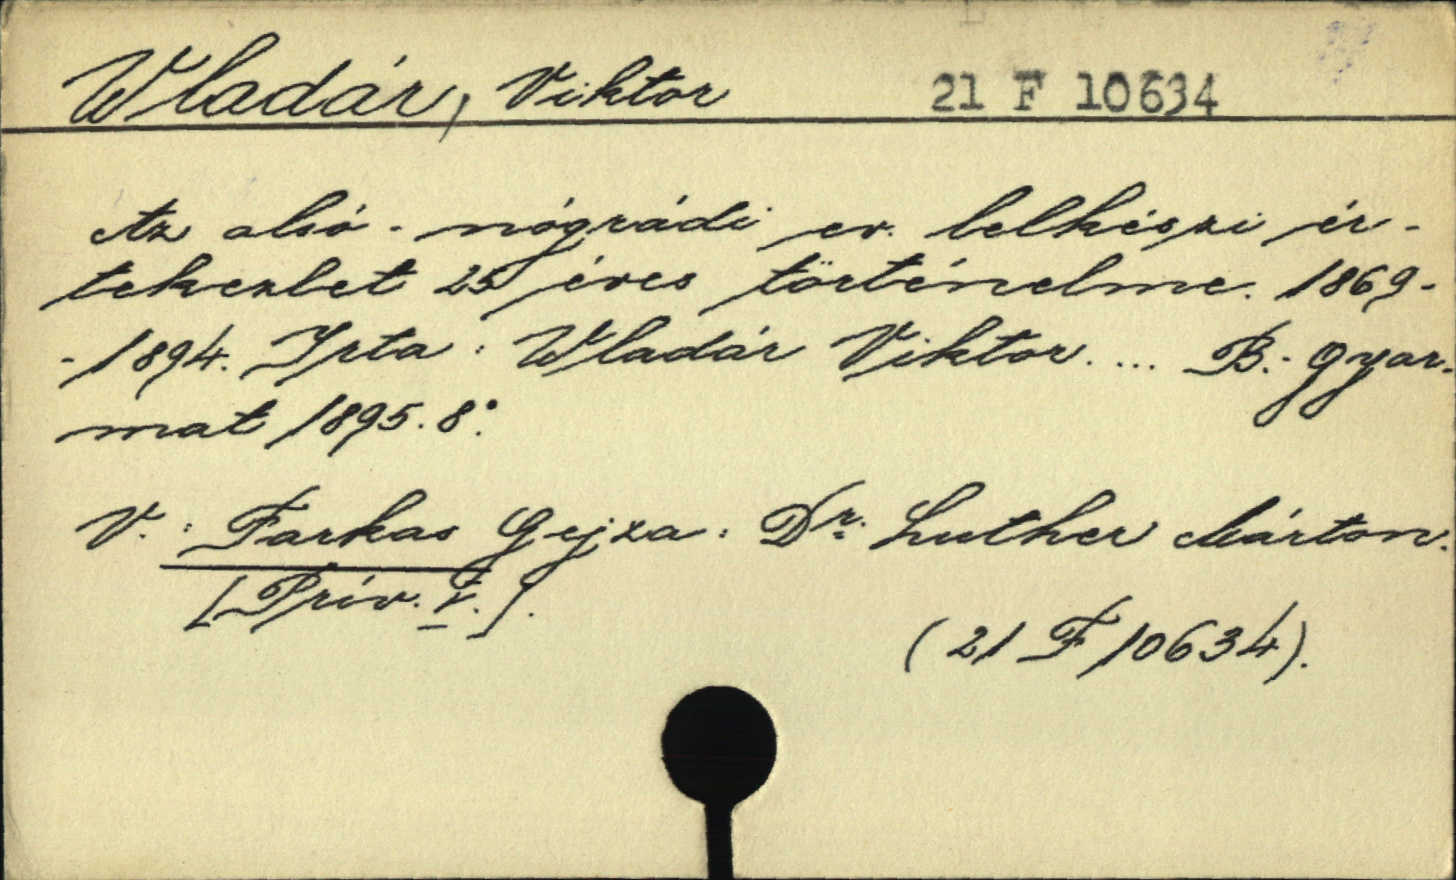 Wladár, Viktor 21 F 10634
Az alsó-nógrádi ev. lelkészi ér-
tekezlet 25 éves történelme. 1869-
-1894. Irta: Wladár Viktor. ... B.-Gyar-
mat 1895. 8°.
V.: Farkas Gejza: Dr. Luther Márton.
[Priv. V.].
(21 F 10634).